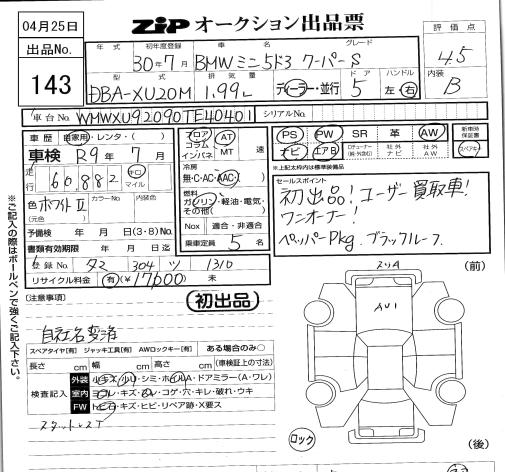 04月25日
ZIP オークション出品票
評価点
4.5
出品No.
143
年式 初年度登録 車名 グレード
30年7月 BMWミニ 5ドア クーパーS
型式 排気量 ドア ハンドル
DBA-XU20M 1.99L ディーラー・並行 5 左・右
内装
B
車台No. WMWXU92090TE40401 シリアルNo.
車歴 自家用・レンタ・( )
車検 R9年7月
走行 60,882 km マイル
色 ホワイトII カラーNo. 内装色
(元色)
予備検 年 月 日(3・8)No.
書類有効期限 年 月 日迄
登録No. タマ 304 ツ 1310
リサイクル料金 有 ¥17600 未
フロア AT
コラム
インパネ MT 速
冷房
無・C・AC・AAC
燃料
ガソリン・軽油・電気・
その他( )
Nox 適合・非適合
乗車定員 5 名
PS PW SR 革 AW
ナビ エアB 社外ナビ 社外AW
新車時保証書
スペアキー
※上記太枠内は標準装備品
セールスポイント
初出品!ユーザー買取車!
ワンオーナー!
ペッパーPkg. ブラックルーフ.
(注意事項)
初出品
自社名変済
スペアタイヤ[有] ジャッキ工具[有] AWロックキー[有] ある場合のみ○
長さ cm 幅 cm 高さ cm (車検証上の寸法)
検査記入
外装 小キズ・小リ・シミ・ホイルA・ドアミラー(A・ワレ)
室内 ヨゴレ・キズ・スレ・コゲ・穴・キレ・破れ・ウキ
FW トビ石・キズ・ヒビ・リペア跡・X要ス
スタットレスT
スリA
(前)
AU1
ロック
(後)
※ご記入の際はボールペンで強くご記入下さい。